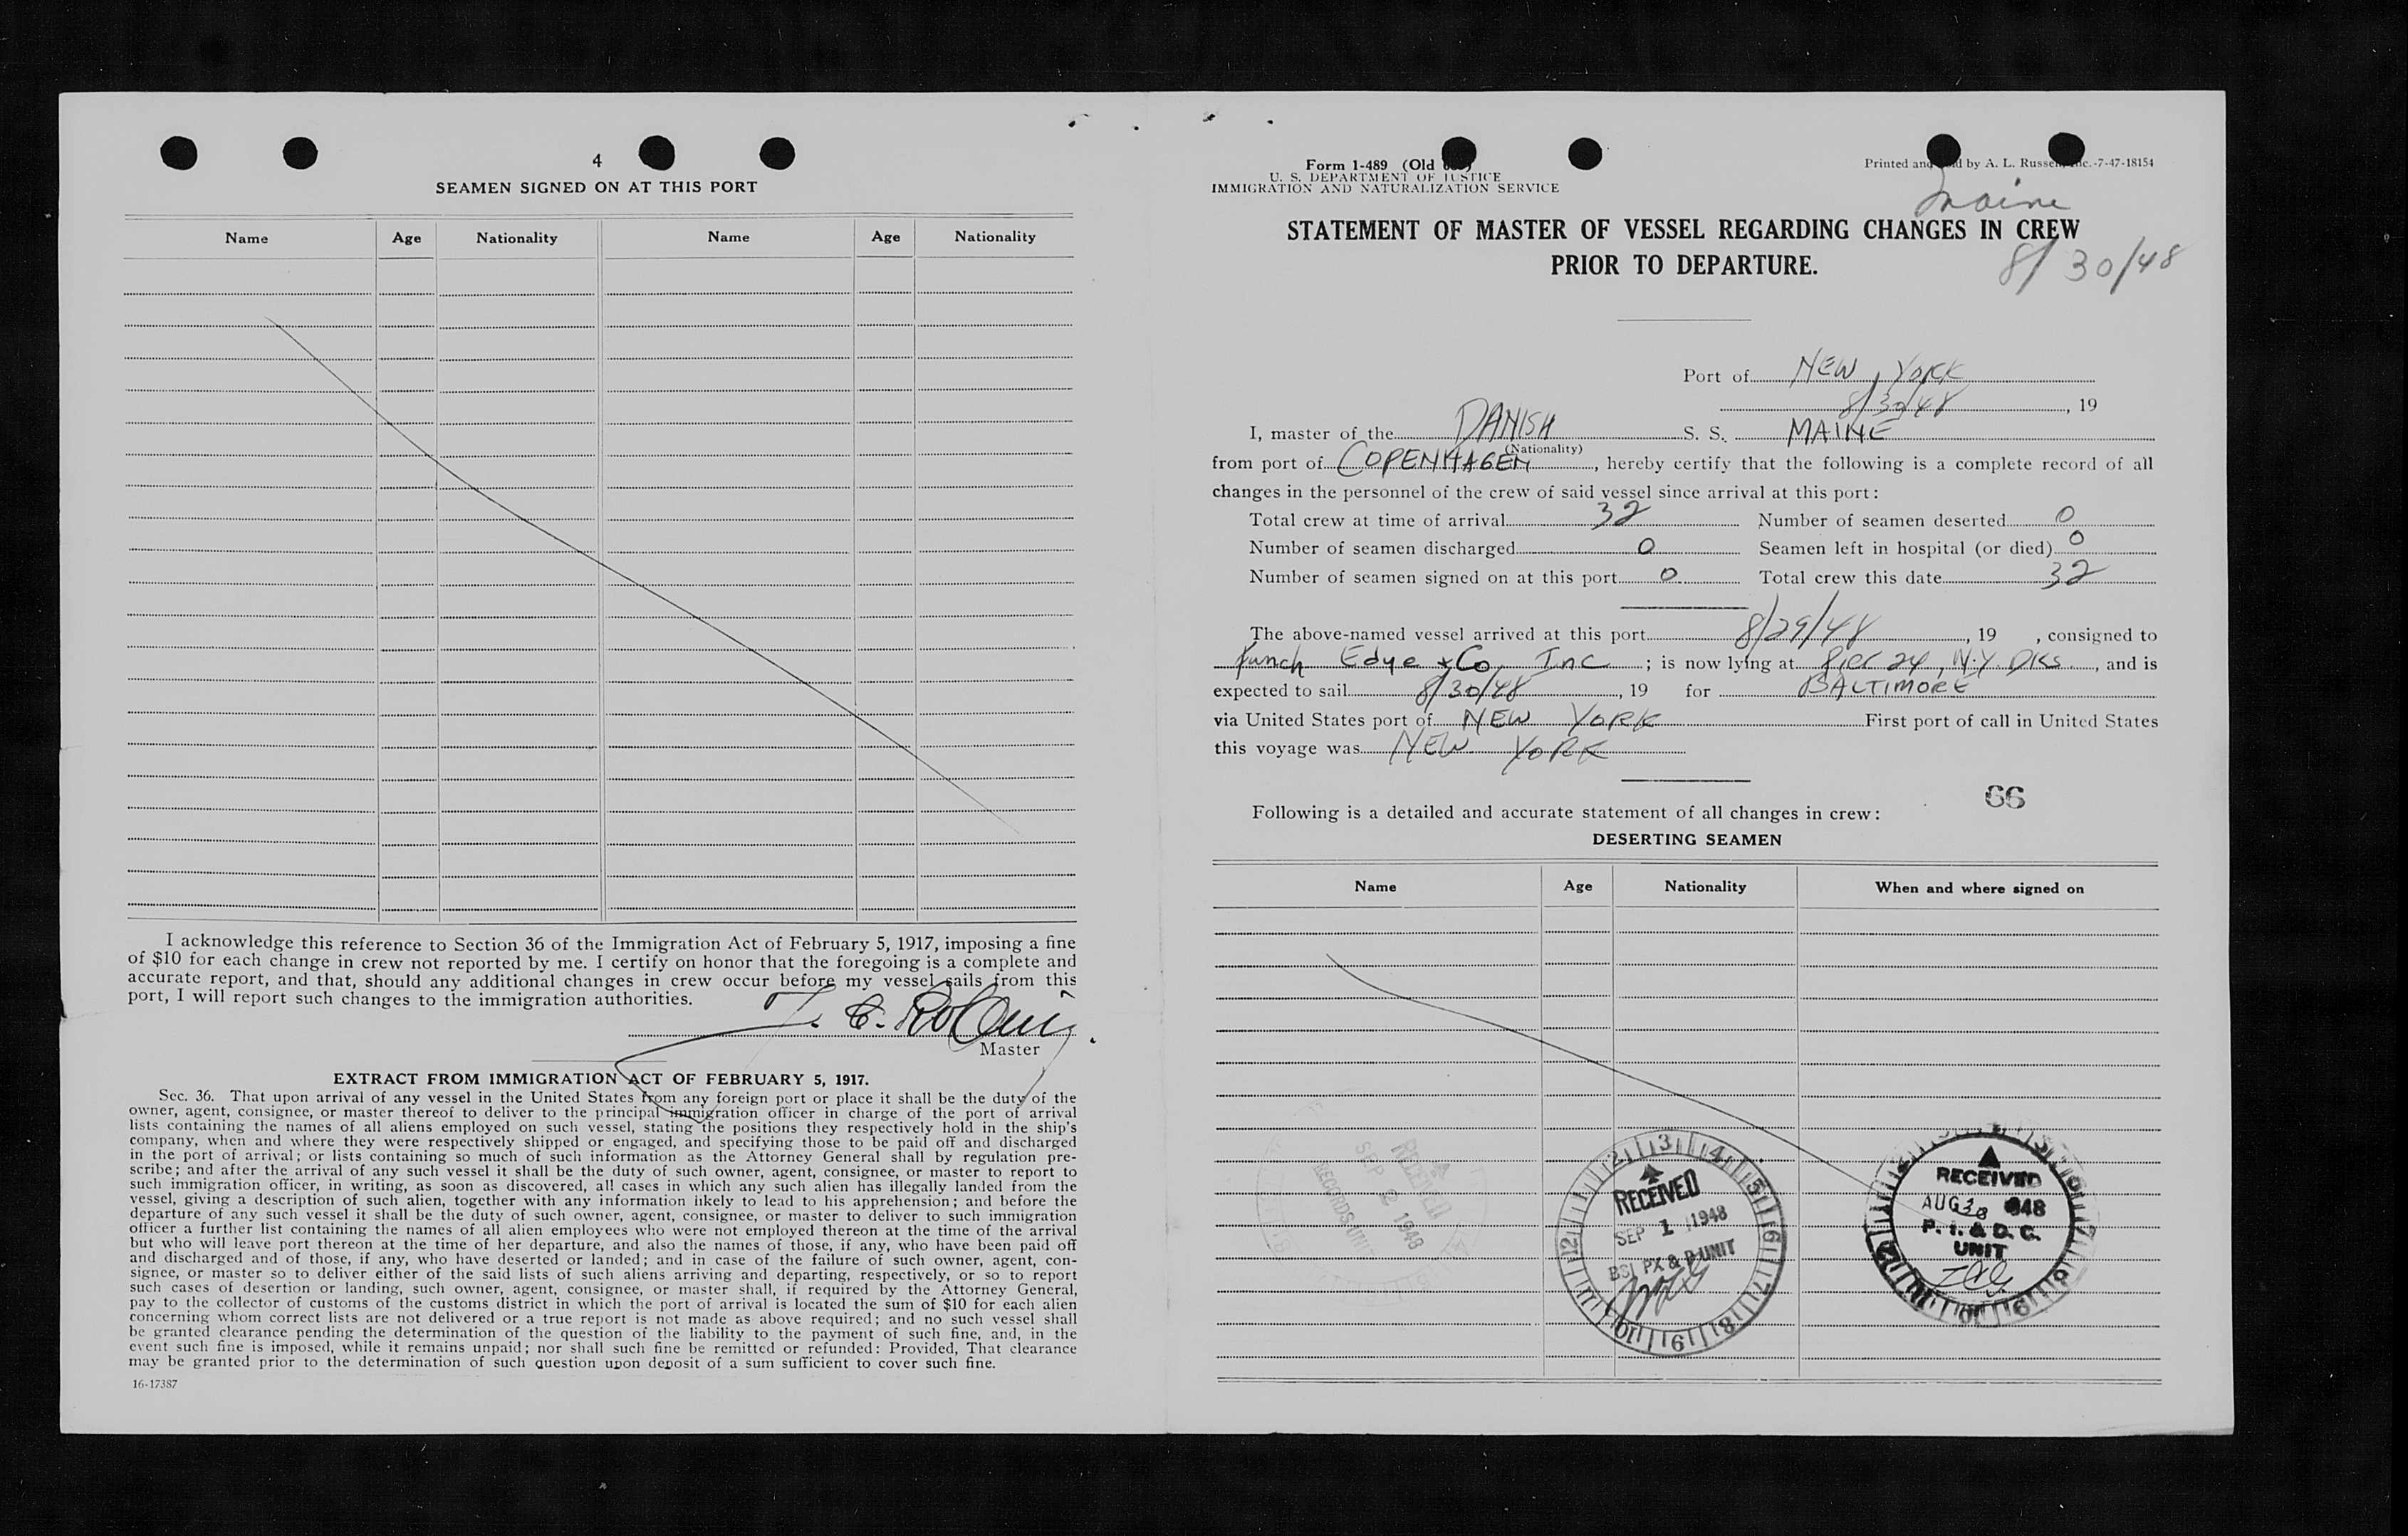 4
SEAMEN SIGNED ON AT THIS PORT
Name Age Nationality Name Age Nationality
I acknowledge this reference to Section 36 of the Immigration Act of February 5, 1917, imposing a fine
of $10 for each change in crew not reported by me. I certify on honor that the foregoing is a complete and
accurate report, and that, should any additional changes in crew occur before my vessel sails from this
port, I will report such changes to the immigration authorities.
Master
EXTRACT FROM IMMIGRATION ACT OF FEBRUARY 5, 1917.
Sec. 36. That upon arrival of any vessel in the United States from any foreign port or place it shall be the duty of the
owner, agent, consignee, or master thereof to deliver to the principal immigration officer in charge of the port of arrival
lists containing the names of all aliens employed on such vessel, stating the positions they respectively hold in the ship's
company, when and where they were respectively shipped or engaged, and specifying those to be paid off and discharged
in the port of arrival; or lists containing so much of such information as the Attorney General shall by regulation pre-
scribe; and after the arrival of any such vessel it shall be the duty of such owner, agent, consignee, or master to report to
such immigration officer, in writing, as soon as discovered, all cases in which any such alien has illegally landed from the
vessel, giving a description of such alien, together with any information likely to lead to his apprehension; and before the
departure of any such vessel it shall be the duty of such owner, agent, consignee, or master to deliver to such immigration
officer a further list containing the names of all alien employees who were not employed thereon at the time of the arrival
but who will leave port thereon at the time of her departure, and also the names of those, if any, who have been paid off
and discharged and of those, if any, who have deserted or landed; and in case of the failure of such owner, agent, con-
signee, or master so to deliver either of the said lists of such aliens arriving and departing, respectively, or so to report
such cases of desertion or landing, such owner, agent, consignee, or master shall, if required by the Attorney General,
pay to the collector of customs of the customs district in which the port of arrival is located the sum of $10 for each alien
concerning whom correct lists are not delivered or a true report is not made as above required; and no such vessel shall
be granted clearance pending the determination of the question of the liability to the payment of such fine, and, in the
event such fine is imposed, while it remains unpaid; nor shall such fine be remitted or refunded: Provided, That clearance
may be granted prior to the determination of such question upon deposit of a sum sufficient to cover such fine.
16-17387
Form 1-489 (Old
U. S. DEPARTMENT OF JUSTICE
IMMIGRATION AND NATURALIZATION SERVICE
Printed and by A. L. Russell, Inc.-7-47-18154
Maine
STATEMENT OF MASTER OF VESSEL REGARDING CHANGES IN CREW
PRIOR TO DEPARTURE.
8/30/48
Port of NEW YORK
8/30/48, 19
I, master of the DANISH S. S. MAINE
(Nationality)
from port of COPENHAGEN, hereby certify that the following is a complete record of all
changes in the personnel of the crew of said vessel since arrival at this port:
Total crew at time of arrival 32 Number of seamen deserted 0
Number of seamen discharged 0 Seamen left in hospital (or died) 0
Number of seamen signed on at this port 0 Total crew this date 32
The above-named vessel arrived at this port 8/29/48, 19 , consigned to
Funch Edye & Co, Inc ; is now lying at Pier 24, N.Y. DKS., and is
expected to sail 8/30/48, 19 for BALTIMORE
via United States port of NEW YORK First port of call in United States
this voyage was NEW YORK
66
Following is a detailed and accurate statement of all changes in crew:
DESERTING SEAMEN
Name Age Nationality When and where signed on
RECEIVED
SEP 2 1948
RECORDS UNIT
RECEIVED
SEP 1 1948
BSI PX & P UNIT
RECEIVED
AUG 30 948
P. I. & D. C.
UNIT